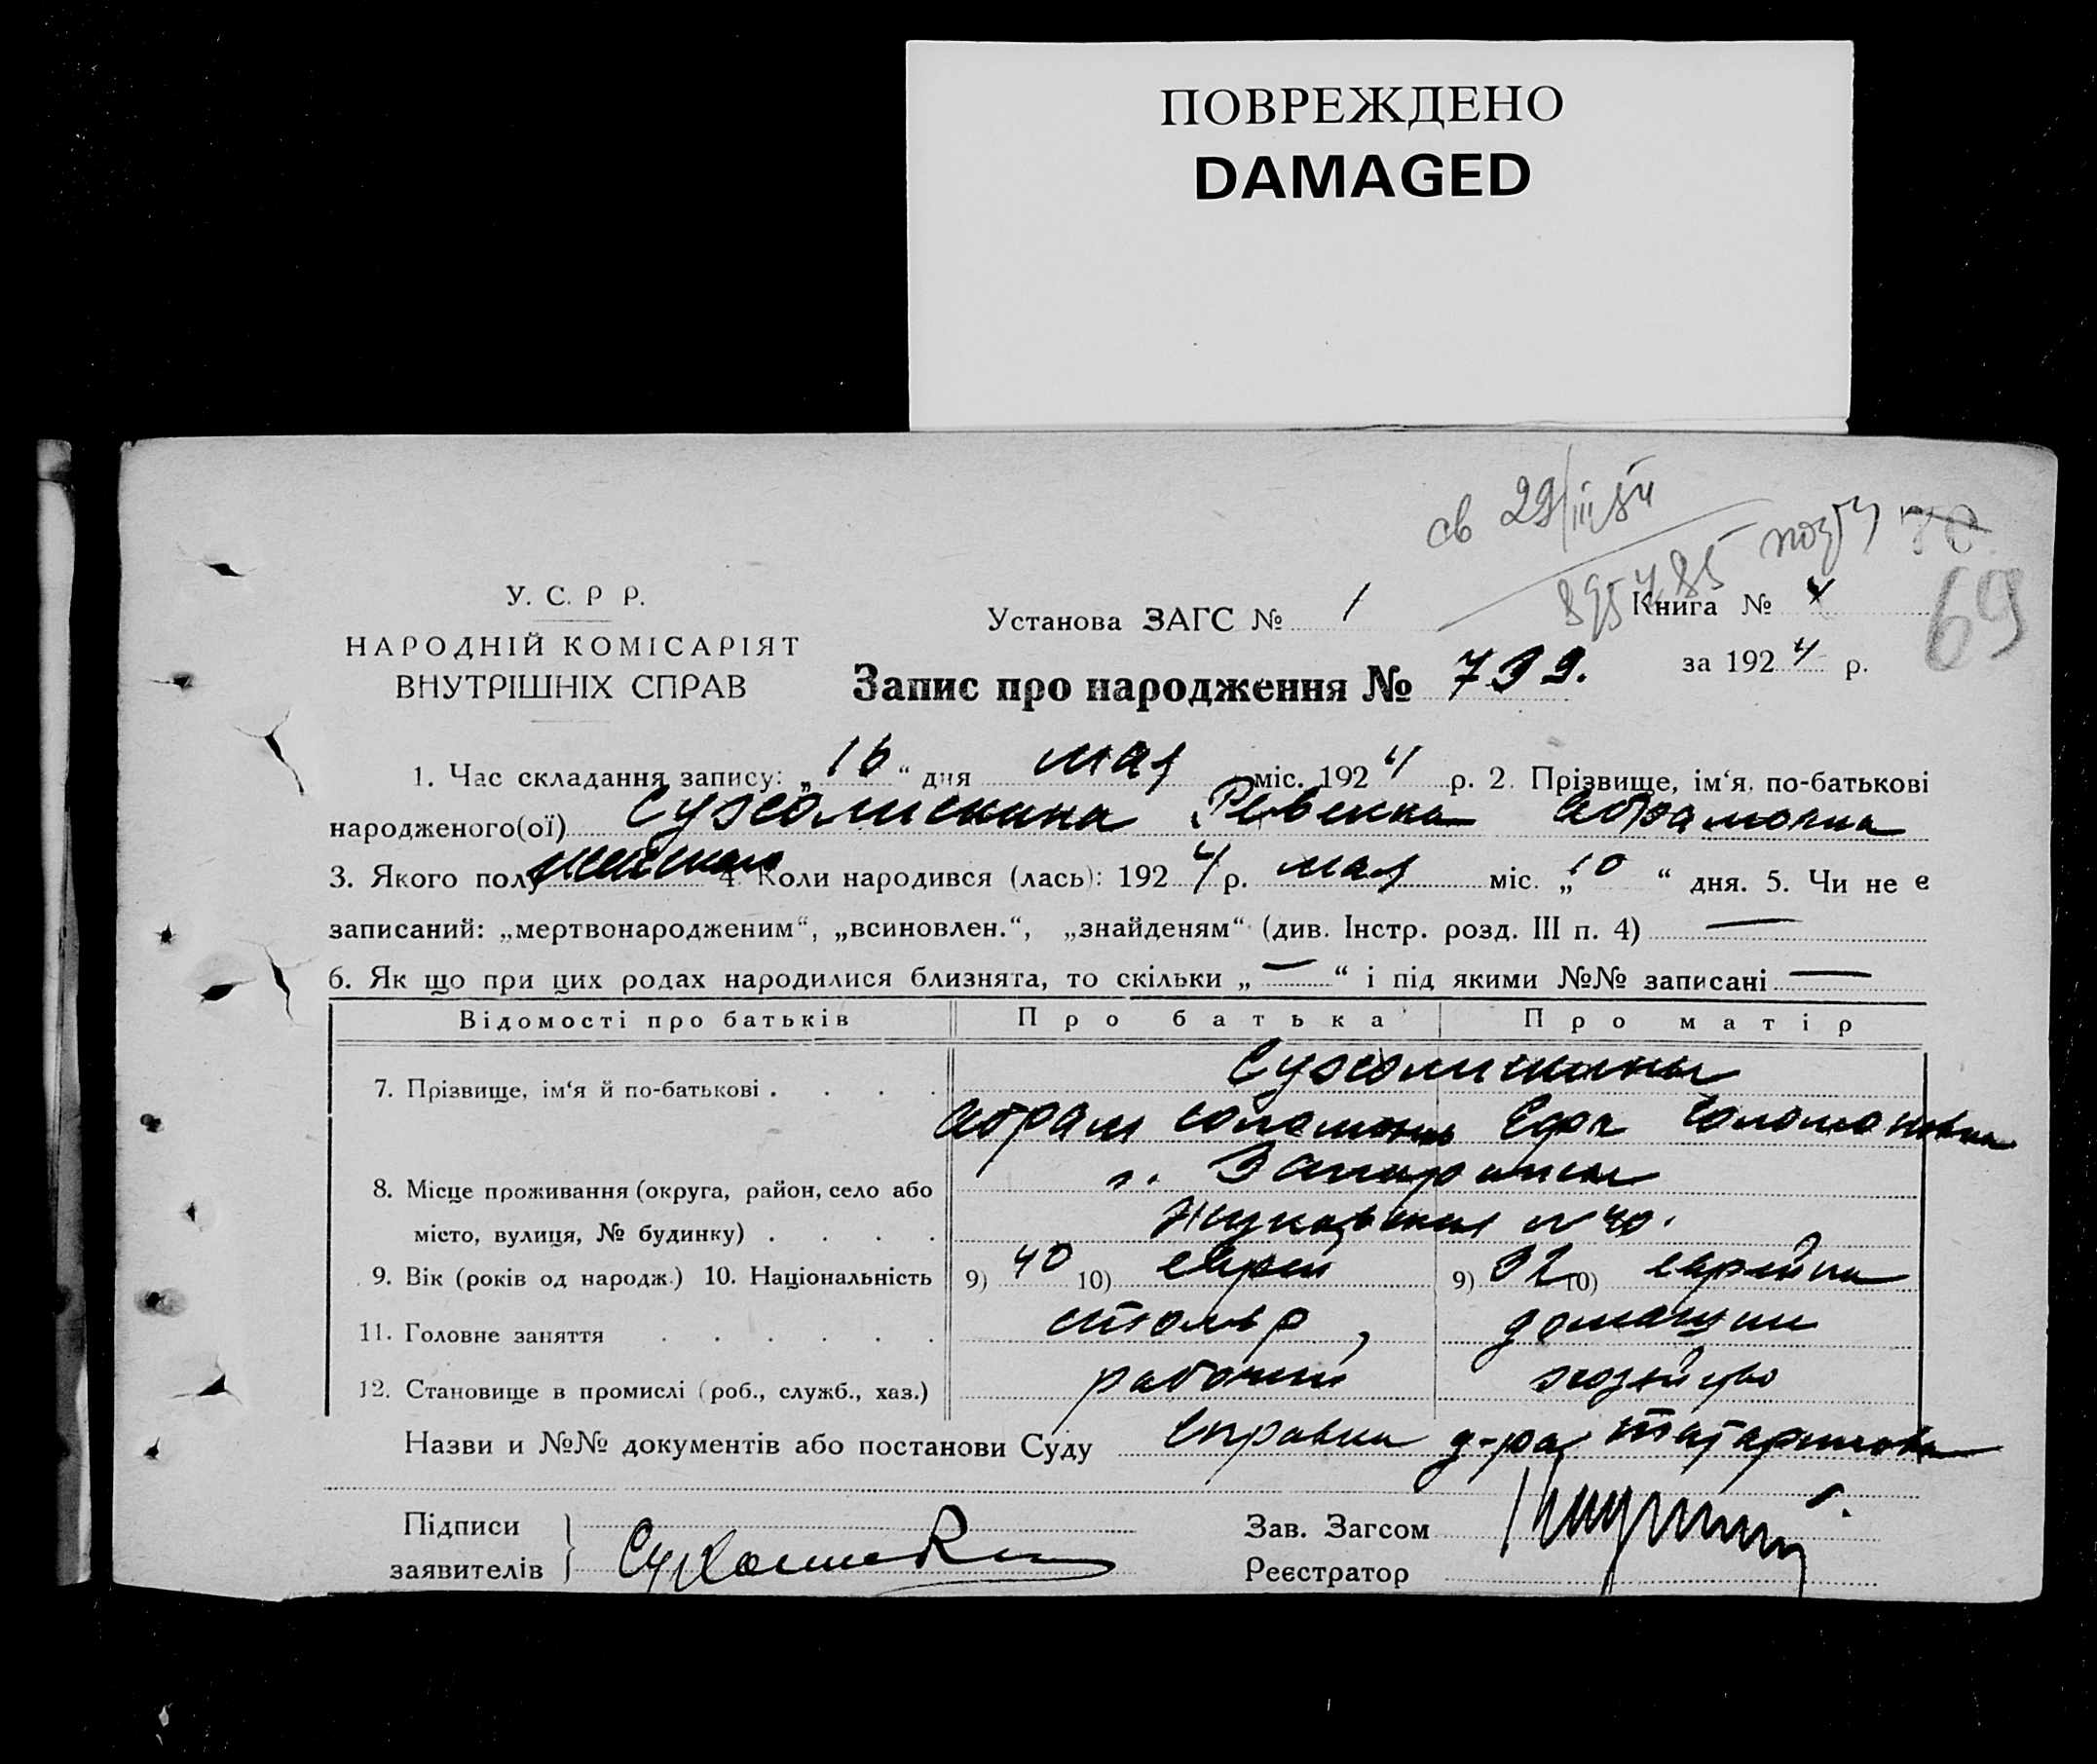 ПОВРЕЖДЕНО
DAMAGED
св 29/III 84
70
69
У. С. Р Р.
НАРОДНІЙ КОМІСАРІЯТ
ВНУТРІШНІХ СПРАВ
Установа ЗАГС № 1
Книга № 4
за 1924 р.
Запис про народження № 739.
1. Час складання запису: „16“ дня мая міс. 1924 р. 2. Прізвище, ім‘я, по-батькові
народженого(ої) Сухолискина Ревекка Абрамовна
3. Якого полу женского 4. Коли народився (лась): 1924 р. мая міс. „10“ дня. 5. Чи не є
записаний: „мертвонародженим“, „всиновлен.“, „знайденям“ (див. Інстр. розд. III п. 4) —
6. Як що при цих родах народилися близнята, то скільки „—“ і під якими №№ записані —
Відомості про батьків Про батька Про матір
7. Прізвище, ім‘я й по-батькові . . . . Сухолискины
Абрам Соломонов Соломоновна
8. Місце проживання (округа, район, село або г. Запорожье
місто, вулиця, № будинку) . . . . Жуковская № 40.
9. Вік (років од народж.) 10. Національність 9) 40 10) еврей 9) 32 10) еврейка
11. Головне заняття . . . . . . столяр, домашнее
12. Становище в промислі (роб., служб., хаз.) рабочий хозяйство
Назви и №№ документів або постанови Суду Справка д-ра Татаринова
Підписи
заявителів
Зав. Загсом
Реєстратор